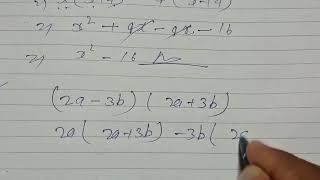 ⇒ x² + 4x - 4x - 16
⇒ x² - 16
(2a - 3b) (2a + 3b)
2a ( 2a + 3b) - 3b ( 2a